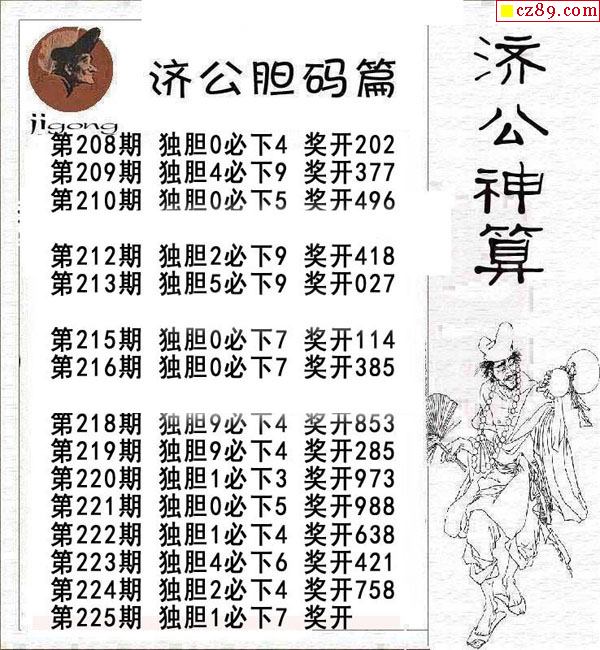 cz89.com
济公胆码篇
jigong
第208期 独胆0必下4 奖开202
第209期 独胆4必下9 奖开377
第210期 独胆0必下5 奖开496
第212期 独胆2必下9 奖开418
第213期 独胆5必下9 奖开027
第215期 独胆0必下7 奖开114
第216期 独胆0必下7 奖开385
第218期 独胆9必下4 奖开853
第219期 独胆9必下4 奖开285
第220期 独胆1必下3 奖开973
第221期 独胆0必下5 奖开988
第222期 独胆1必下4 奖开638
第223期 独胆4必下6 奖开421
第224期 独胆2必下4 奖开758
第225期 独胆1必下7 奖开
济公神算